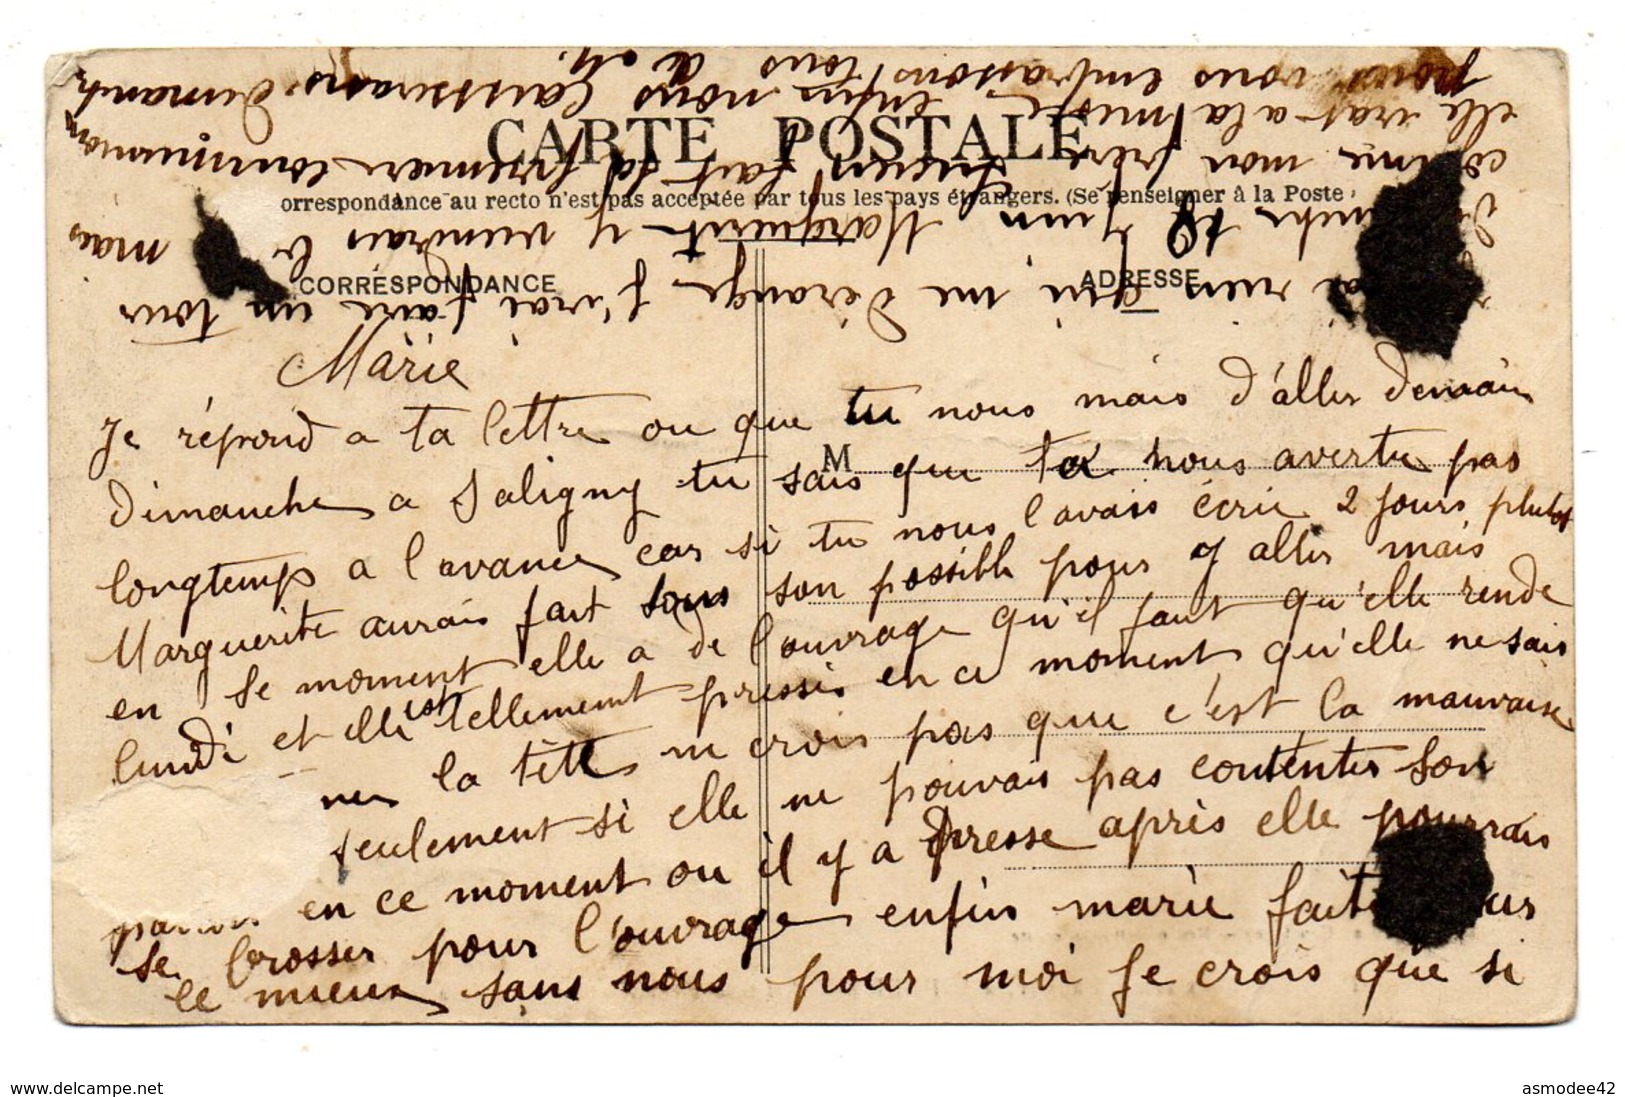 CARTE POSTALE
orrespondance au recto n'est pas acceptée par tous les pays étrangers. (Se renseigner à la Poste
CORRESPONDANCE
ADRESSE
M
Marie
Je répond a ta lettre ou que tu nous mais d'aller demain
Dimanche a Saligny tu sais que ta nous avertu pas
longtemps a l'avance car si tu nous l'avais écrie 2 jours plutot
Marguerite aurais fait tous son possible pour y aller mais
en se moment elle a de l'ouvrage qu'il faut qu'elle rende
lundi et elle est tellement pressés en ce moment qu'elle ne sais
la tête ne crois pas que c'est la mauvaise
seulement si elle ne pouvais pas contenter son
en ce moment ou il y a presse après elle pourrais
se brosser pour l'ouvrage enfin marie faite
le mieux sans nous pour moi je crois que si
rien qui me dérange j'irai faire un tour
18 Juin Marguerite y viendrais la mais
comme mon frère Lucien fait sa premier communion
elle irat a la messe enfin nous laisserons dimanche
vous embrassons tous
www.delcampe.net
asmodee42